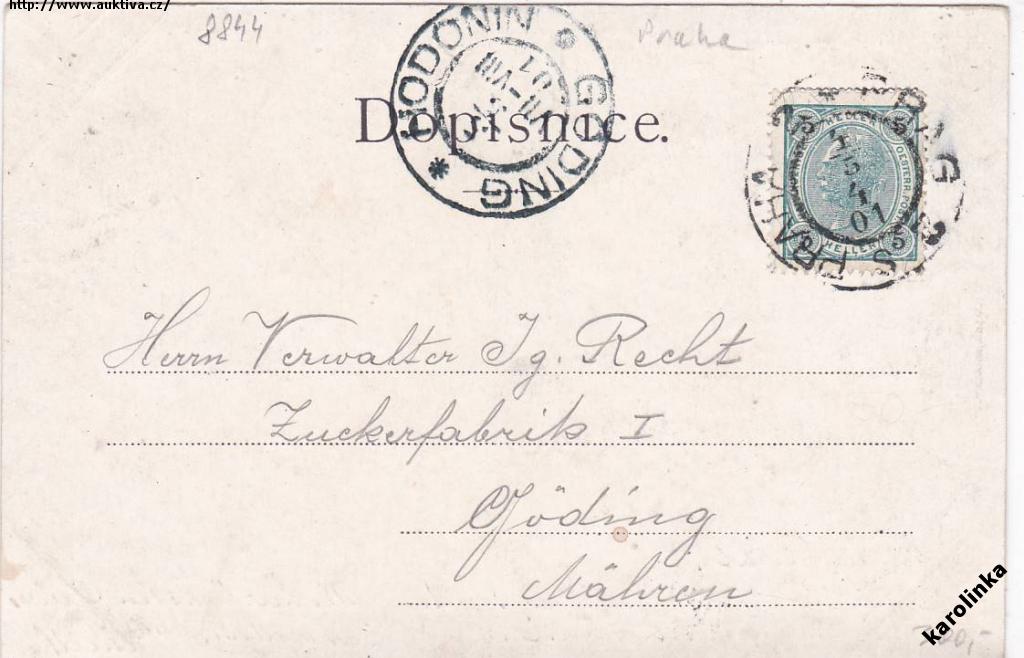 http://www.auktiva.cz/
8844
Praha
HODONIN * GÖDING *
Dopisnice.
5 5
HELLER
5 5
01
Herrn Verwalter Ig. Recht
Zuckerfabrik I
Göding
Mähren
karolinka